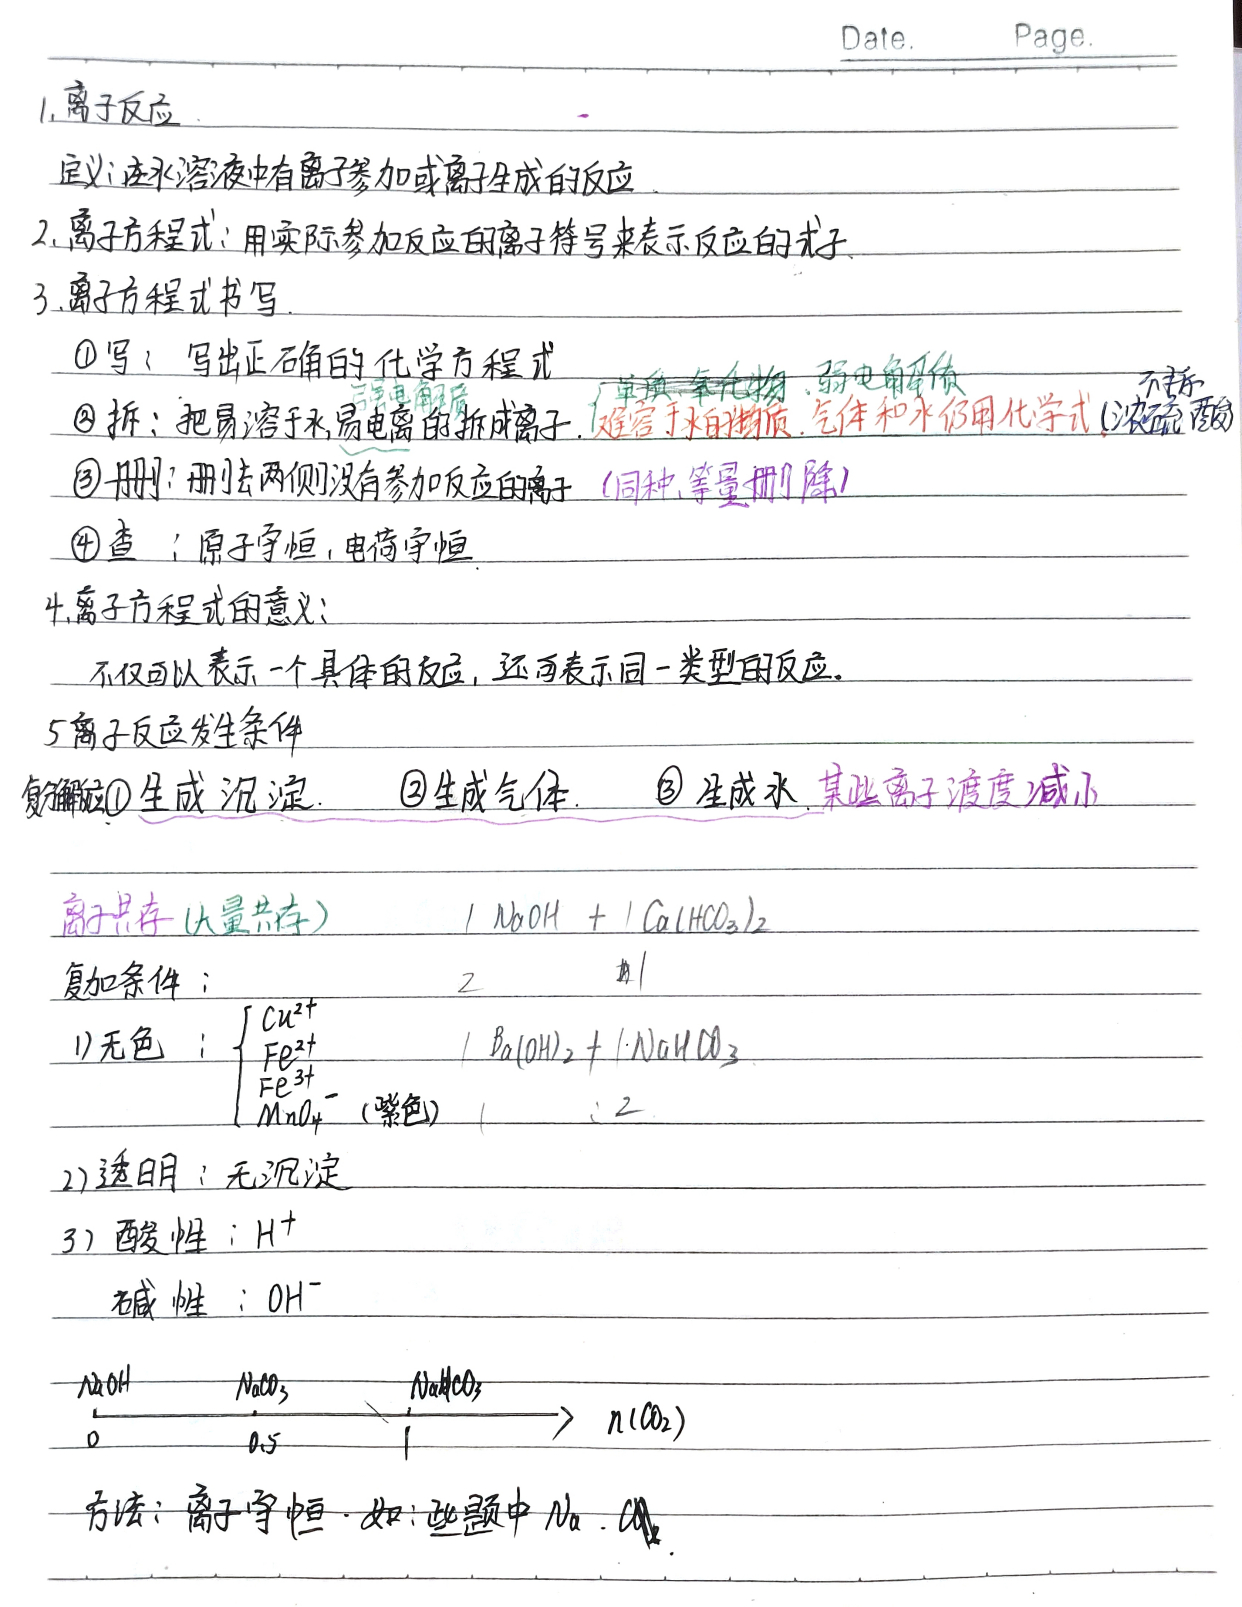 Date. Page.
1.离子反应.
定义:在水溶液中有离子参加或离子生成的反应.
2.离子方程式:用实际参加反应的离子符号来表示反应的式子.
3.离子方程式书写.
①写: 写出正确的化学方程式
单质 氧化物、弱电解质
强电解质
不拆
②拆:把易溶于水,易电离的拆成离子.难溶于水的物质、气体和水仍用化学式(浓硫酸)
③删:删去两侧没有参加反应的离子 (同种、等量删除)
④查 :原子守恒,电荷守恒.
4.离子方程式的意义:
不仅可以表示一个具体的反应,还可表示同一类型的反应。
5离子反应发生条件
复分解反应①生成沉淀. ②生成气体. ③生成水.某些离子浓度减小
离子共存(大量共存) 1 NaOH + 1 Ca(HCO₃)₂
复加条件: 2 1
1)无色:{ Cu²⁺
Fe²⁺ 1 Ba(OH)₂ + 1·NaHCO₃
Fe³⁺
MnO₄⁻ (紫色) 1 : 2
2)透明:无沉淀
3)酸性:H⁺
碱性:OH⁻
NaOH NaCO₃ NaHCO₃
0 0.5 1 n(CO₂)
方法:离子守恒.如:此题中Na.